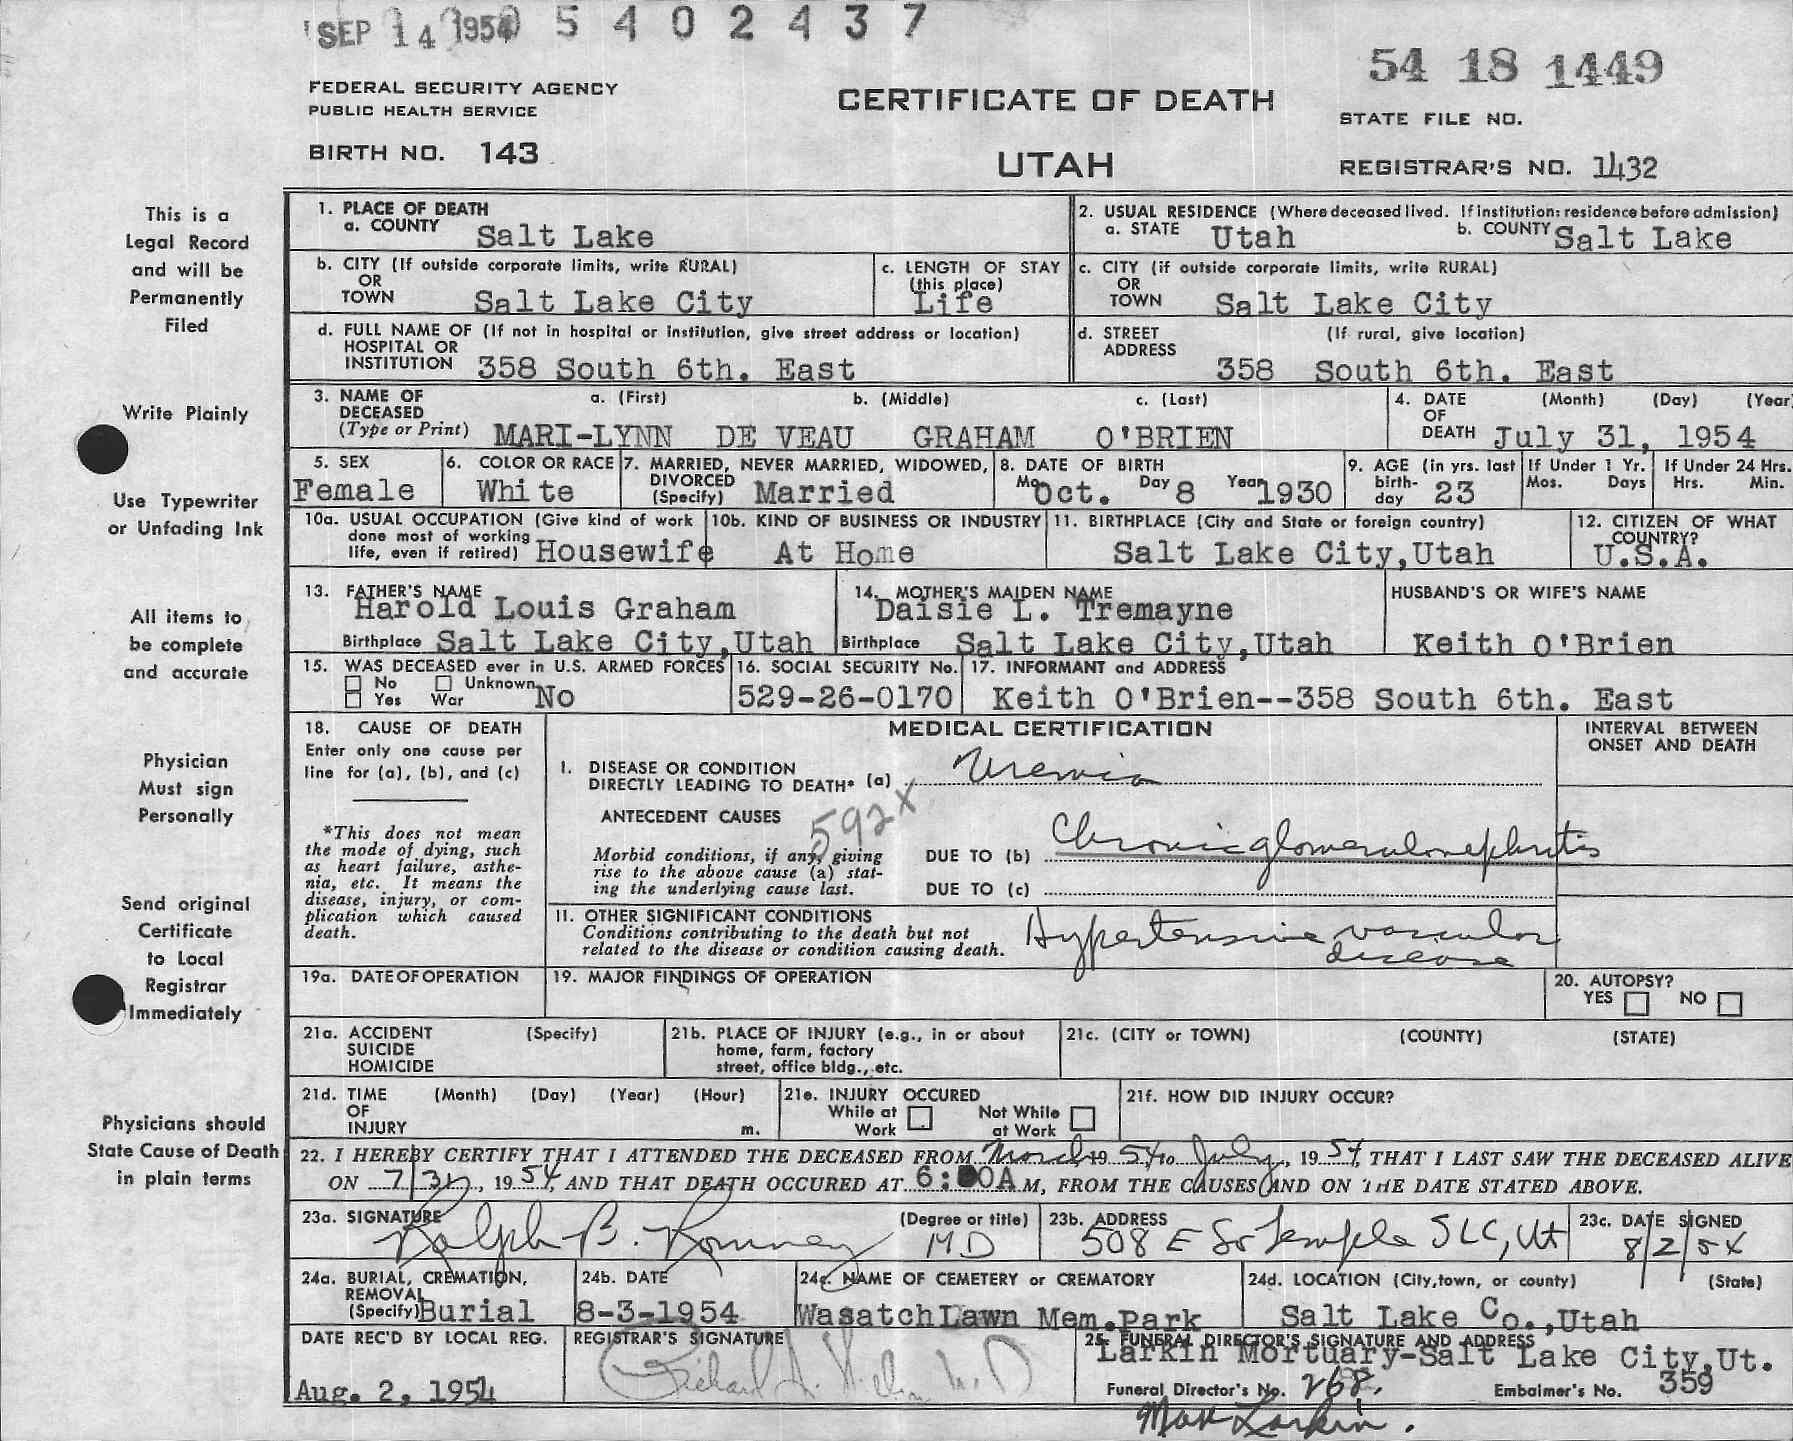 SEP 14 1954 5 4 0 2 4 3 7
54 18 1449
FEDERAL SECURITY AGENCY
PUBLIC HEALTH SERVICE
CERTIFICATE OF DEATH
STATE FILE NO.
BIRTH NO. 143
UTAH
REGISTRAR'S NO. 1432
This is a
Legal Record
and will be
Permanently
Filed
Write Plainly
Use Typewriter
or Unfading Ink
All items to
be complete
and accurate
Physician
Must sign
Personally
Send original
Certificate
to Local
Registrar
Immediately
Physicians should
State Cause of Death
in plain terms
1. PLACE OF DEATH
a. COUNTY Salt Lake
2. USUAL RESIDENCE (Where deceased lived. If institution: residence before admission)
a. STATE Utah b. COUNTY Salt Lake
b. CITY (If outside corporate limits, write RURAL)
OR
TOWN Salt Lake City
c. LENGTH OF STAY
(this place)
Life
c. CITY (if outside corporate limits, write RURAL)
OR
TOWN Salt Lake City
d. FULL NAME OF (If not in hospital or institution, give street address or location)
HOSPITAL OR
INSTITUTION 358 South 6th. East
d. STREET (If rural, give location)
ADDRESS 358 South 6th. East
3. NAME OF a. (First) b. (Middle) c. (Last)
DECEASED
(Type or Print) MARI-LYNN DE VEAU GRAHAM O'BRIEN
4. DATE (Month) (Day) (Year
OF
DEATH July 31, 1954
5. SEX
Female
6. COLOR OR RACE
White
7. MARRIED, NEVER MARRIED, WIDOWED,
DIVORCED
(Specify) Married
8. DATE OF BIRTH
Mo Oct. Day 8 Year 1930
9. AGE (in yrs. last
birth-
day 23
If Under 1 Yr.
Mos. Days
If Under 24 Hrs.
Hrs. Min.
10a. USUAL OCCUPATION (Give kind of work
done most of working
life, even if retired) Housewife
10b. KIND OF BUSINESS OR INDUSTRY
At Home
11. BIRTHPLACE (City and State or foreign country)
Salt Lake City,Utah
12. CITIZEN OF WHAT
COUNTRY?
U.S.A.
13. FATHER'S NAME
Harold Louis Graham
Birthplace Salt Lake City,Utah
14. MOTHER'S MAIDEN NAME
Daisie L. Tremayne
Birthplace Salt Lake City,Utah
HUSBAND'S OR WIFE'S NAME
Keith O'Brien
15. WAS DECEASED ever in U.S. ARMED FORCES
No Unknown
Yes War No
16. SOCIAL SECURITY No.
529-26-0170
17. INFORMANT and ADDRESS
Keith O'Brien--358 South 6th. East
18. CAUSE OF DEATH
Enter only one cause per
line for (a), (b), and (c)
*This does not mean
the mode of dying, such
as heart failure, asthe-
nia, etc. It means the
disease, injury, or com-
plication which caused
death.
MEDICAL CERTIFICATION
INTERVAL BETWEEN
ONSET AND DEATH
I. DISEASE OR CONDITION
DIRECTLY LEADING TO DEATH* (a) Uremia
ANTECEDENT CAUSES 592X
Morbid conditions, if any, giving
rise to the above cause (a) stat-
ing the underlying cause last.
DUE TO (b) Chronic glomerulonephritis
DUE TO (c)
II. OTHER SIGNIFICANT CONDITIONS
Conditions contributing to the death but not
related to the disease or condition causing death.
Hypertensive vascular
disease
19a. DATE OF OPERATION
19. MAJOR FINDINGS OF OPERATION
20. AUTOPSY?
YES NO
21a. ACCIDENT (Specify)
SUICIDE
HOMICIDE
21b. PLACE OF INJURY (e.g., in or about
home, farm, factory
street, office bldg., etc.
21c. (CITY or TOWN) (COUNTY) (STATE)
21d. TIME (Month) (Day) (Year) (Hour)
OF
INJURY m.
21e. INJURY OCCURED
While at Not While
Work at Work
21f. HOW DID INJURY OCCUR?
22. I HEREBY CERTIFY THAT I ATTENDED THE DECEASED FROM March, 19 54, to July, 19 54, THAT I LAST SAW THE DECEASED ALIVE
ON 7/31, 19 54, AND THAT DEATH OCCURED AT 6: 0A M, FROM THE CAUSES AND ON THE DATE STATED ABOVE.
23a. SIGNATURE (Degree or title)
Ralph B. Romney MD
23b. ADDRESS
508 E So Temple SLC, Ut
23c. DATE SIGNED
8/2/54
24a. BURIAL, CREMATION,
REMOVAL
(Specify) Burial
24b. DATE
8-3-1954
24c. NAME OF CEMETERY or CREMATORY
Wasatch Lawn Mem.Park
24d. LOCATION (City, town, or county) (State)
Salt Lake Co.,Utah
DATE REC'D BY LOCAL REG.
Aug. 2, 1954
REGISTRAR'S SIGNATURE
Richard
25. FUNERAL DIRECTOR'S SIGNATURE AND ADDRESS
Larkin Mortuary-Salt Lake City,Ut.
Funeral Director's No. 268. Embalmer's No. 359
Max Larkin.